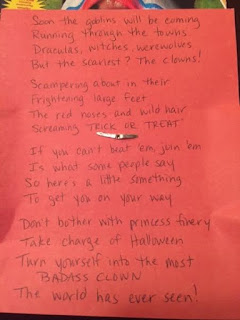 Soon the goblins will be coming
Running through the towns
Draculas, witches, werewolves
But the scariest? The clowns!
Scampering about in their
Frightening large feet
The red noses and wild hair
Screaming TRICK OR TREAT
If you can't beat 'em, join 'em
Is what some people say
So here's a little something
To get you on your way
Don't bother with princess finery
Take charge of Halloween
Turn yourself into the most
BADASS CLOWN
The world has ever seen!